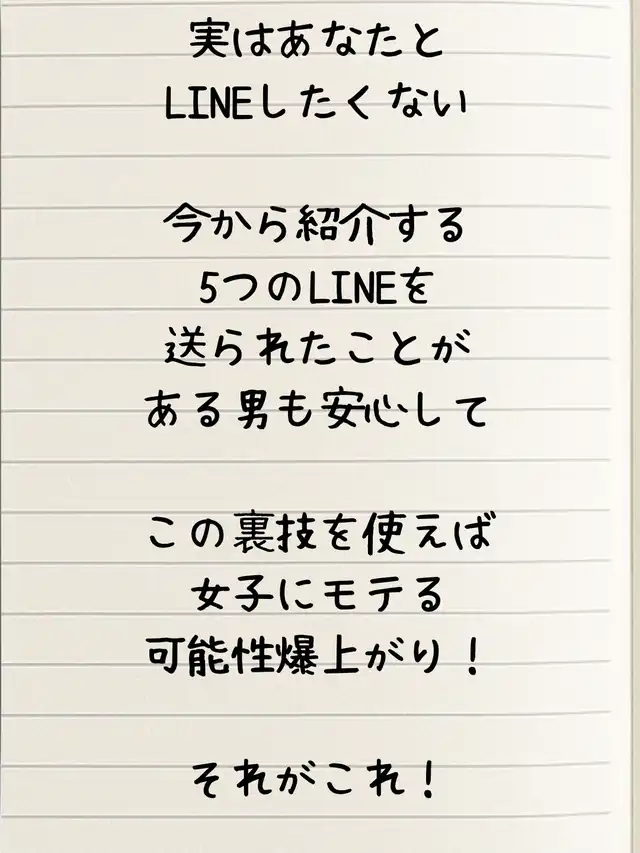 実はあなたと
LINEしたくない
今から紹介する
5つのLINEを
送られたことが
ある男も安心して
この裏技を使えば
女子にモテる
可能性爆上がり！
それがこれ！